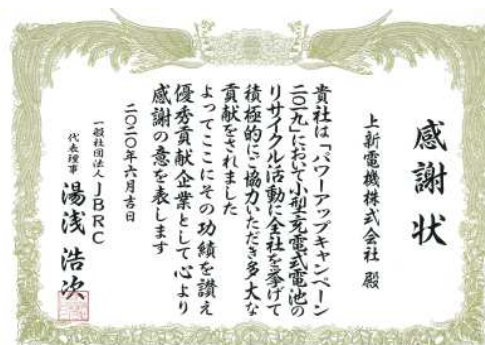 感謝状
上新電機株式会社 殿
貴社は「パワーアップキャンペーン
二〇一九」において小型充電式電池の
リサイクル活動に全社を挙げて
積極的にご協力いただき多大な
貢献をされました
よってここにその功績を讃え
優秀貢献企業として心より
感謝の意を表します
二〇二〇年六月吉日
一般社団法人JBRC
代表理事 湯浅 浩次